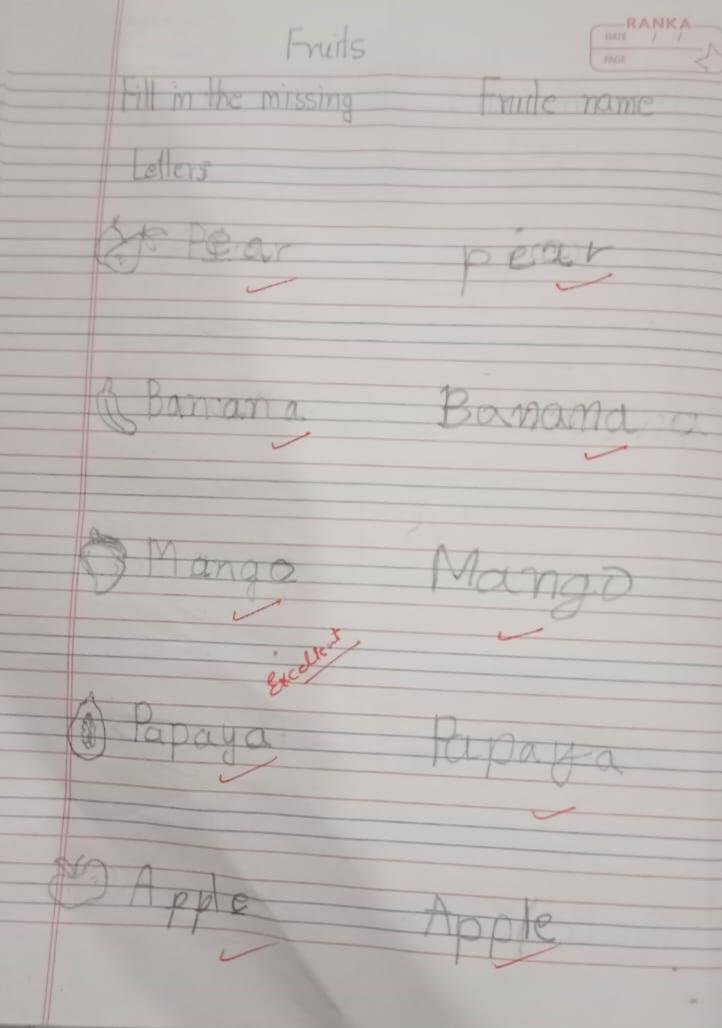 RANKA
DATE / /
PAGE
Fruits
Fill in the missing Fruite name
Letters
Pear pear
Banana Banana a
Mango Mango
Excellent
Papaya Papaya
Apple Apple